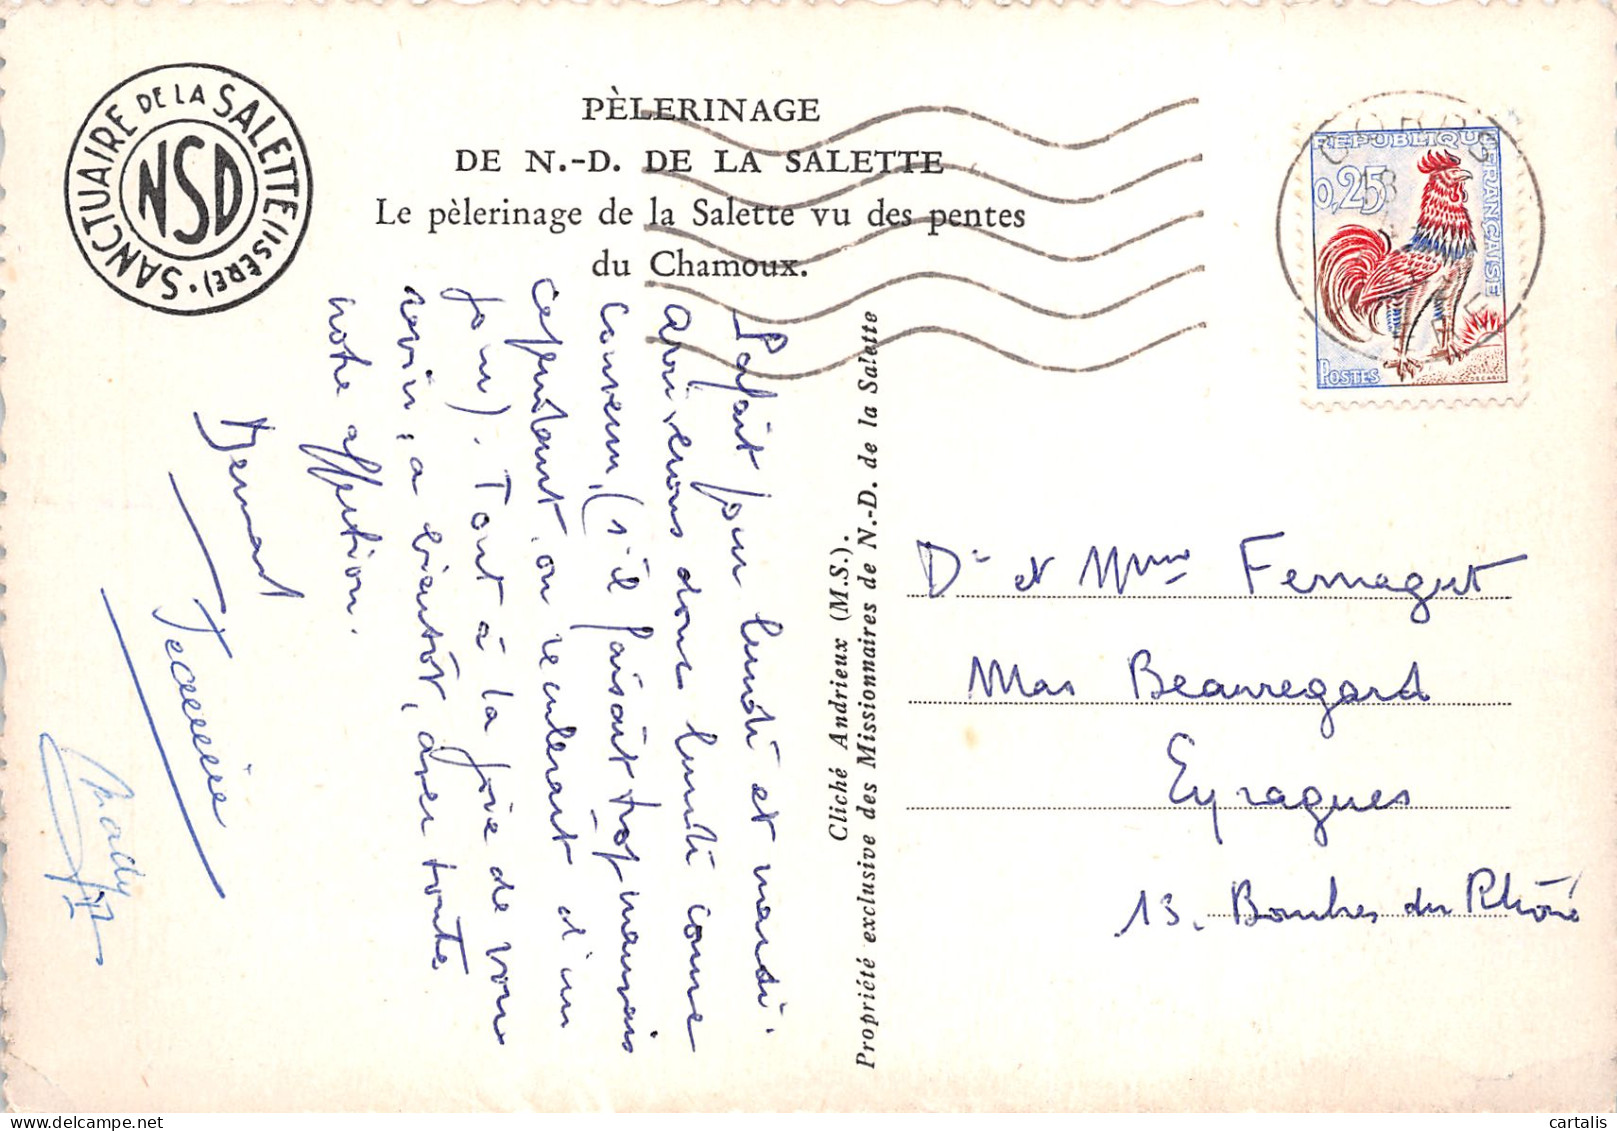 SANCTUAIRE DE LA SALETTE (ISÈRE).
NSD
PÈLERINAGE
DE N.-D. DE LA SALETTE
Le pèlerinage de la Salette vu des pentes
du Chamoux.
Parfait pour lundi et mardi.
Arriverons donc lundi comme
convenu, (s'il faisait trop mauvais
cependant, on reculerait d'un
jour). Tout à la joie de vous
revoir, à bientôt, avec toute
notre affection.
Bernard
Cliché Andrieux (M.S.).
Propriété exclusive des Missionnaires de N.-D. de la Salette
CORPS
18
REPUBLIQUE FRANÇAISE
0,25
POSTES
DECARIS
Dr et Mme Fernagut
Mas Beauregard
Eyragues
13. Bouches du Rhône
cartalis